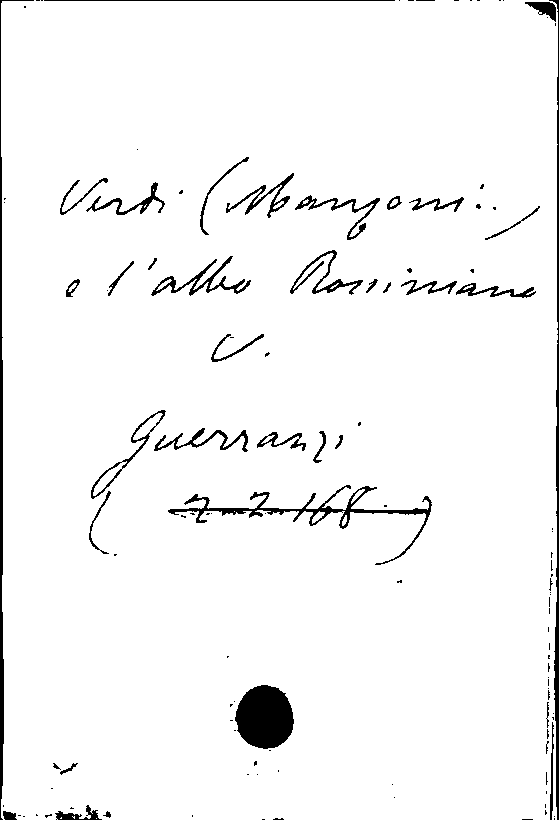 Verdi (Manzoni..)
e l'albo Rossiniano
V.
Guerranzi
( Z Z 168 )